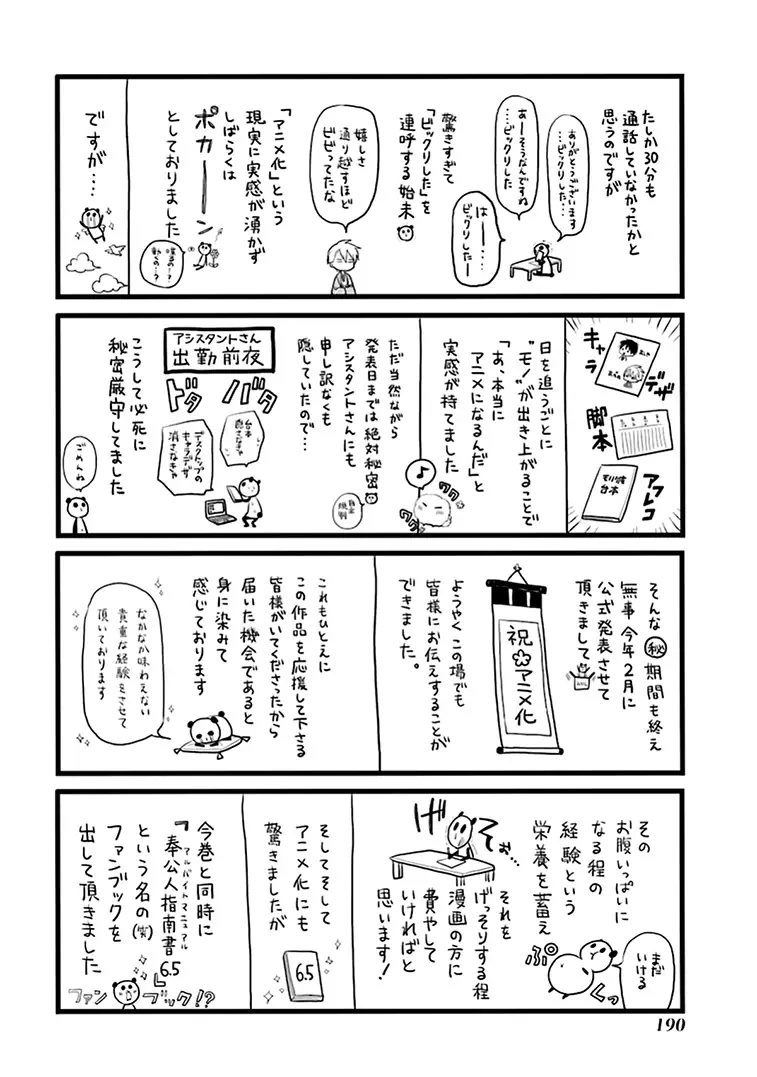 たしか30分も
通話していなかったかと
思うのですが
ありがとうございます
…ビックリした…
あーそうなんですね
…ビックリした
はーー……
ビックリしたー
驚きすぎて
「ビックリした」を
連呼する始末
嬉しさ
通り越すほど
ビビってたな
「アニメ化」という
現実に実感が湧かず
しばらくは
ポカーーン
としておりました
動くの…?
ですが…
キャラ
デザ
脚本
アフレコ
台本
日を追うごとに
"モノ"が出き上がることで
「あ、本当に
アニメになるんだ」と
実感が持てました
♪
ワクワク
ワクワク
ただ当然ながら
発表日までは絶対秘密
アシスタントさんにも
申し訳なくも
隠していたので…
アシスタントさん
出勤前夜
ドタ
バタ
台本
隠さなきゃ
デスクトップの
キャラデザ
消さなきゃ
こうして必死に
秘密厳守してました
ごめんね
そんな㊙期間も終え
無事今年2月に
公式発表させて
頂きまして
祝✿アニメ化
ようやくこの場でも
皆様にお伝えすることが
できました。
これもひとえに
この作品を応援して下さる
皆様がいてくださったから
届いた機会であると
身に染みて
感じております
なかなか味わえない
貴重な経験をさせて
頂いております
その
お腹いっぱいに
なる程の
経験という
栄養を蓄え
まだ
いける
ぷ
くっ
それを
げっそりする程
漫画の方に
費やして
いければと
思います!
げ
そぉ…
そしてそして
アニメ化にも
驚きましたが
6.5
今巻と同時に
「奉公人指南書6.5」
アルバイトマニュアル
という名の(笑)
ファンブックを
出して頂きました
ファンブック!?
190